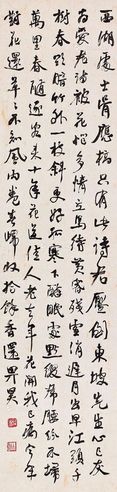 西湖處士骨應槁只有此詩君壓倒東坡先生心已灰
為愛君詩被花惱多情立馬待黃昏殘雪消遲月出早江頭千
樹春欲暗竹外一枝斜更好孤山山下醉眠處點綴裙腰紛不掃
萬里春隨逐客來十年花送佳人老去年花開我已病今年
對花還草草不知風雨捲春歸收拾餘香還畀昊